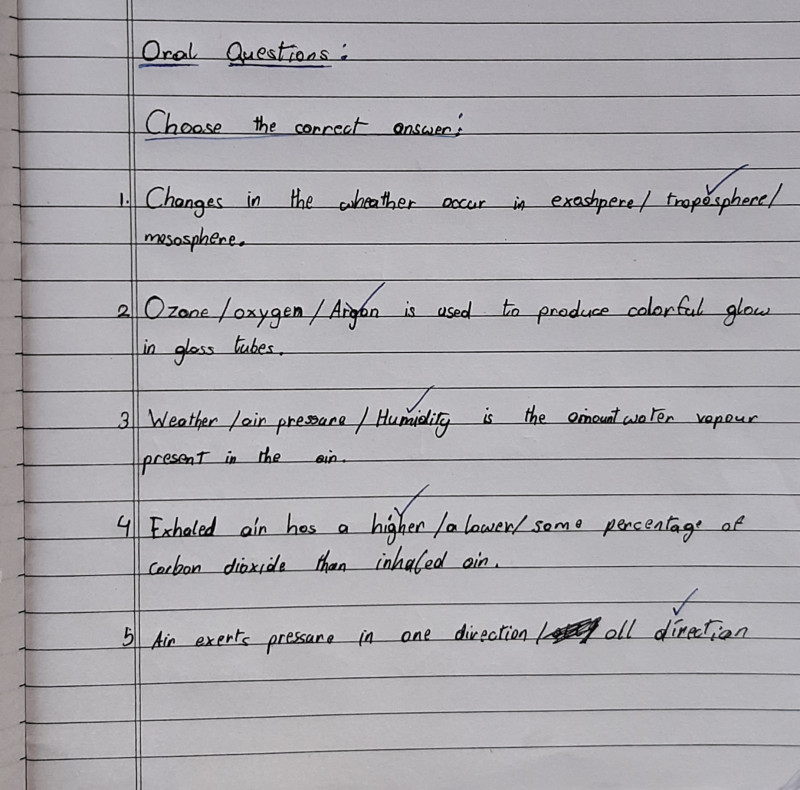 Oral Questions:
Choose the correct answer:
1. Changes in the wheather occur in exashpere/ troposphere/
mesosphere.
2 Ozone /oxygen / Argon is used to produce colorful glow
in glass tubes.
3 Weather /air pressure / Humidity is the amount water vapour
present in the air.
4 Exhaled air has a higher /a lower/ same percentage of
carbon dioxide than inhaled air.
5 Air exerts pressure in one direction / all direction